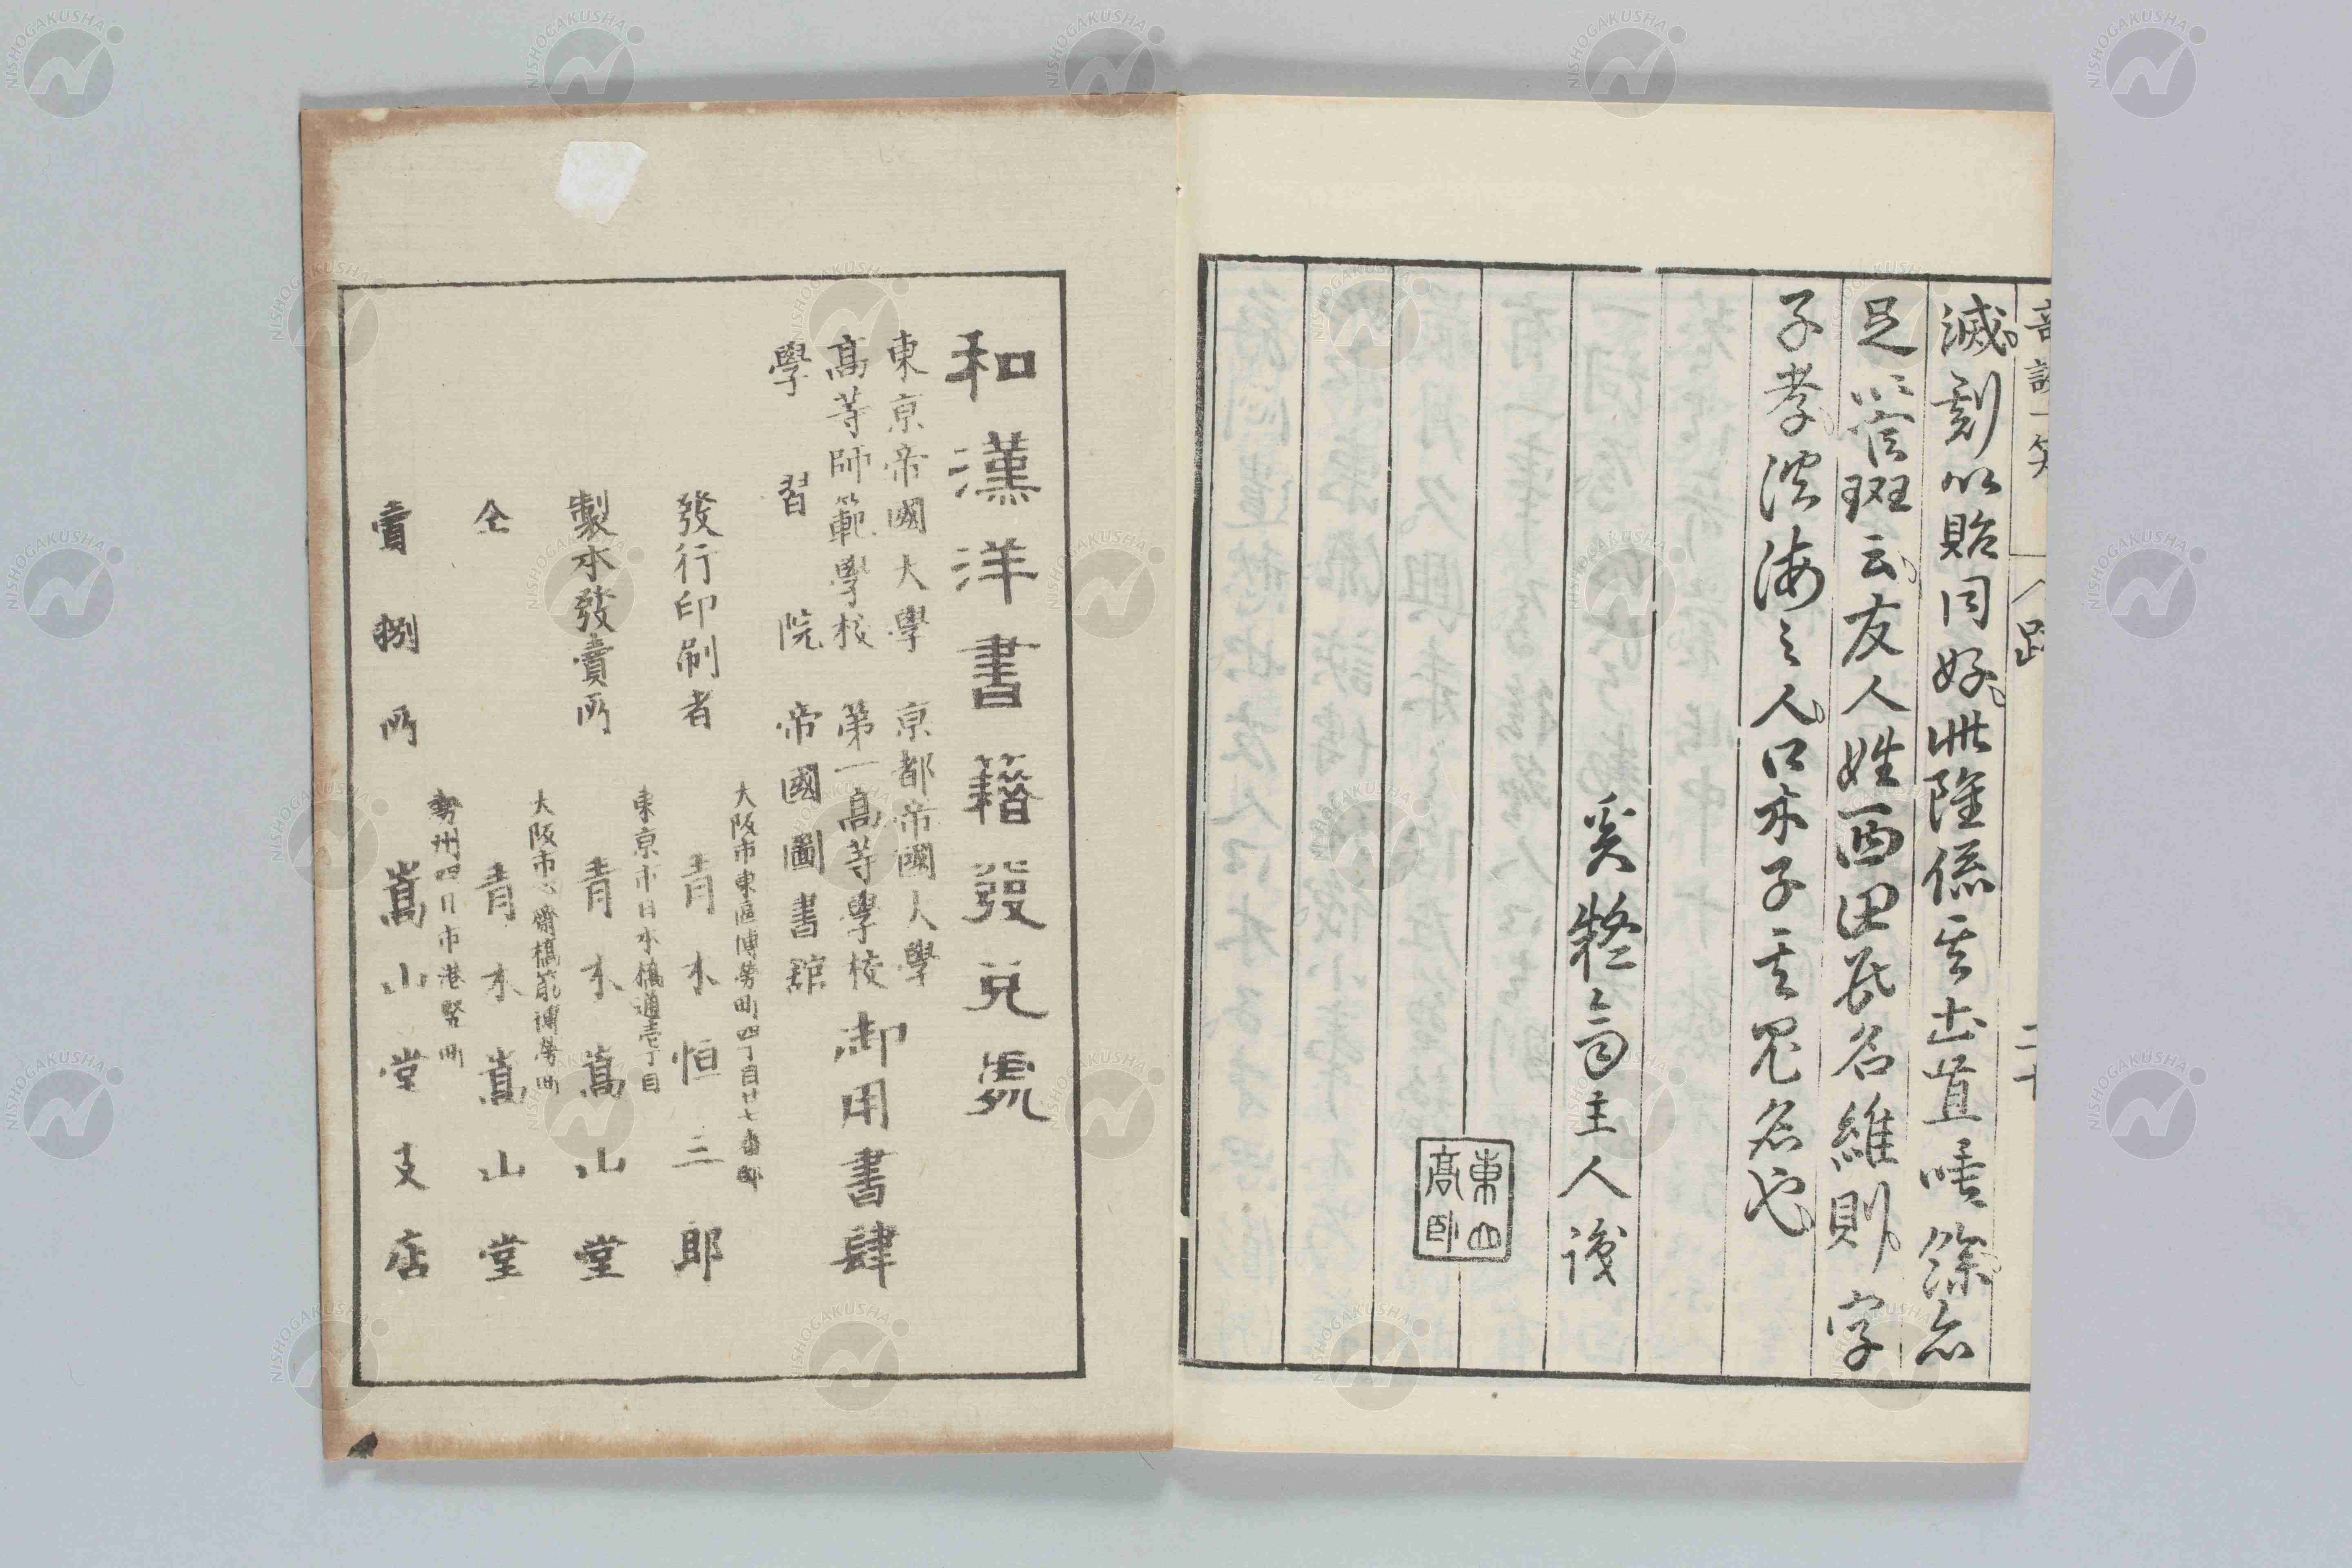 滅刻以貽同好此雖係其土苴唾餘亦
足以管斑云友人姓西田氏名維則字
子孝淡海之人口木子其別名也
奚疑主人識
東山
高臥
奇談一笑
跋
二十
和漢洋書籍發兌處
東京帝國大學 京都帝國大學
高等師範學校 第一高等學校 御用書肆
學習院 帝國圖書館
大阪市東區博勞町四丁目廿七番邸
發行印刷者 青木恒三郎
東京市日本橋通壱丁目
製本發賣所 青木嵩山堂
大阪市心齋橋筋博勞町
仝 青木嵩山堂
勢州四日市港竪町
賣捌所 嵩山堂支店
NISHOGAKUSHA